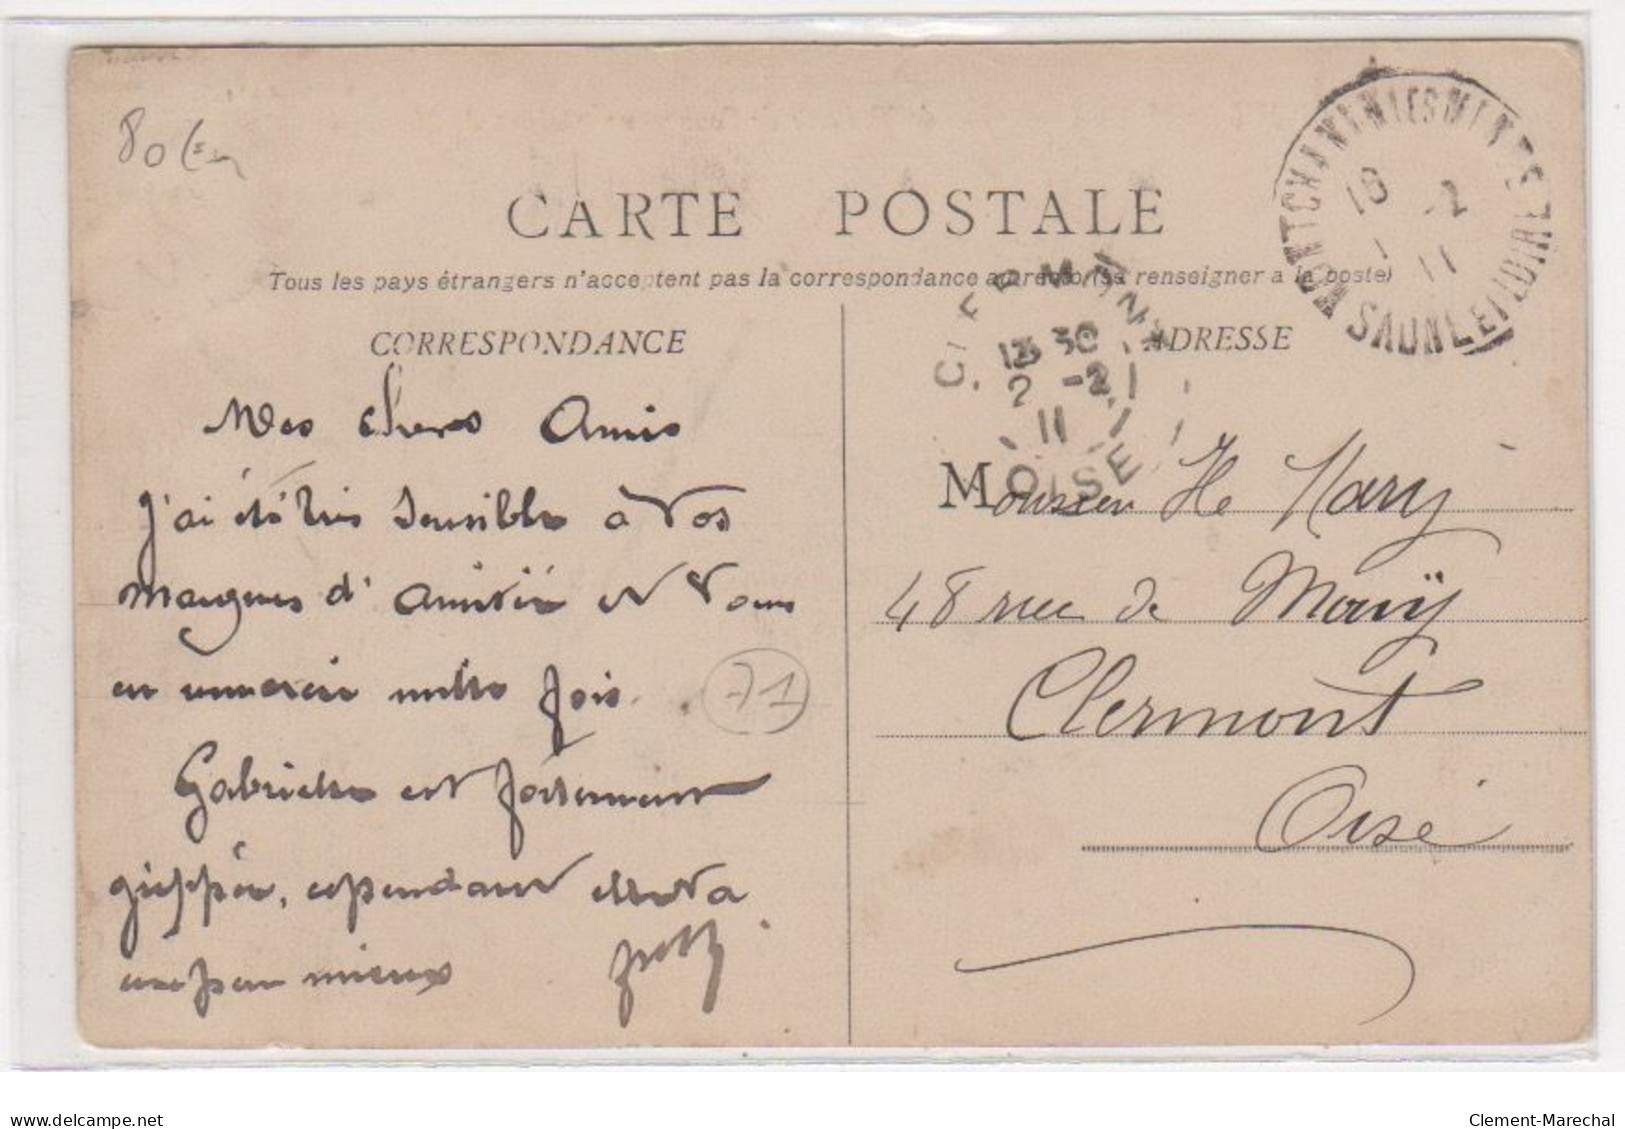 80 Cen
CARTE POSTALE
Tous les pays étrangers n'acceptent pas la correspondance au recto (se renseigner a la poste)
MONTCHANIN LES MINES
1 11
SAONE ET LOIRE
CLERMONT
13 30
2 -2
11
OISE
CORRESPONDANCE
ADRESSE
Mes chers Amis
j'ai été très sensible à vos
marques d'amitié et vous
en remercie mille fois.
71
Gabrielle est fortement
grippée, cependant elle va
un peu mieux
Monsieur He Nary
48 rue de Mouÿ
Clermont
Oise
delcampe.net
Clement-Marechal